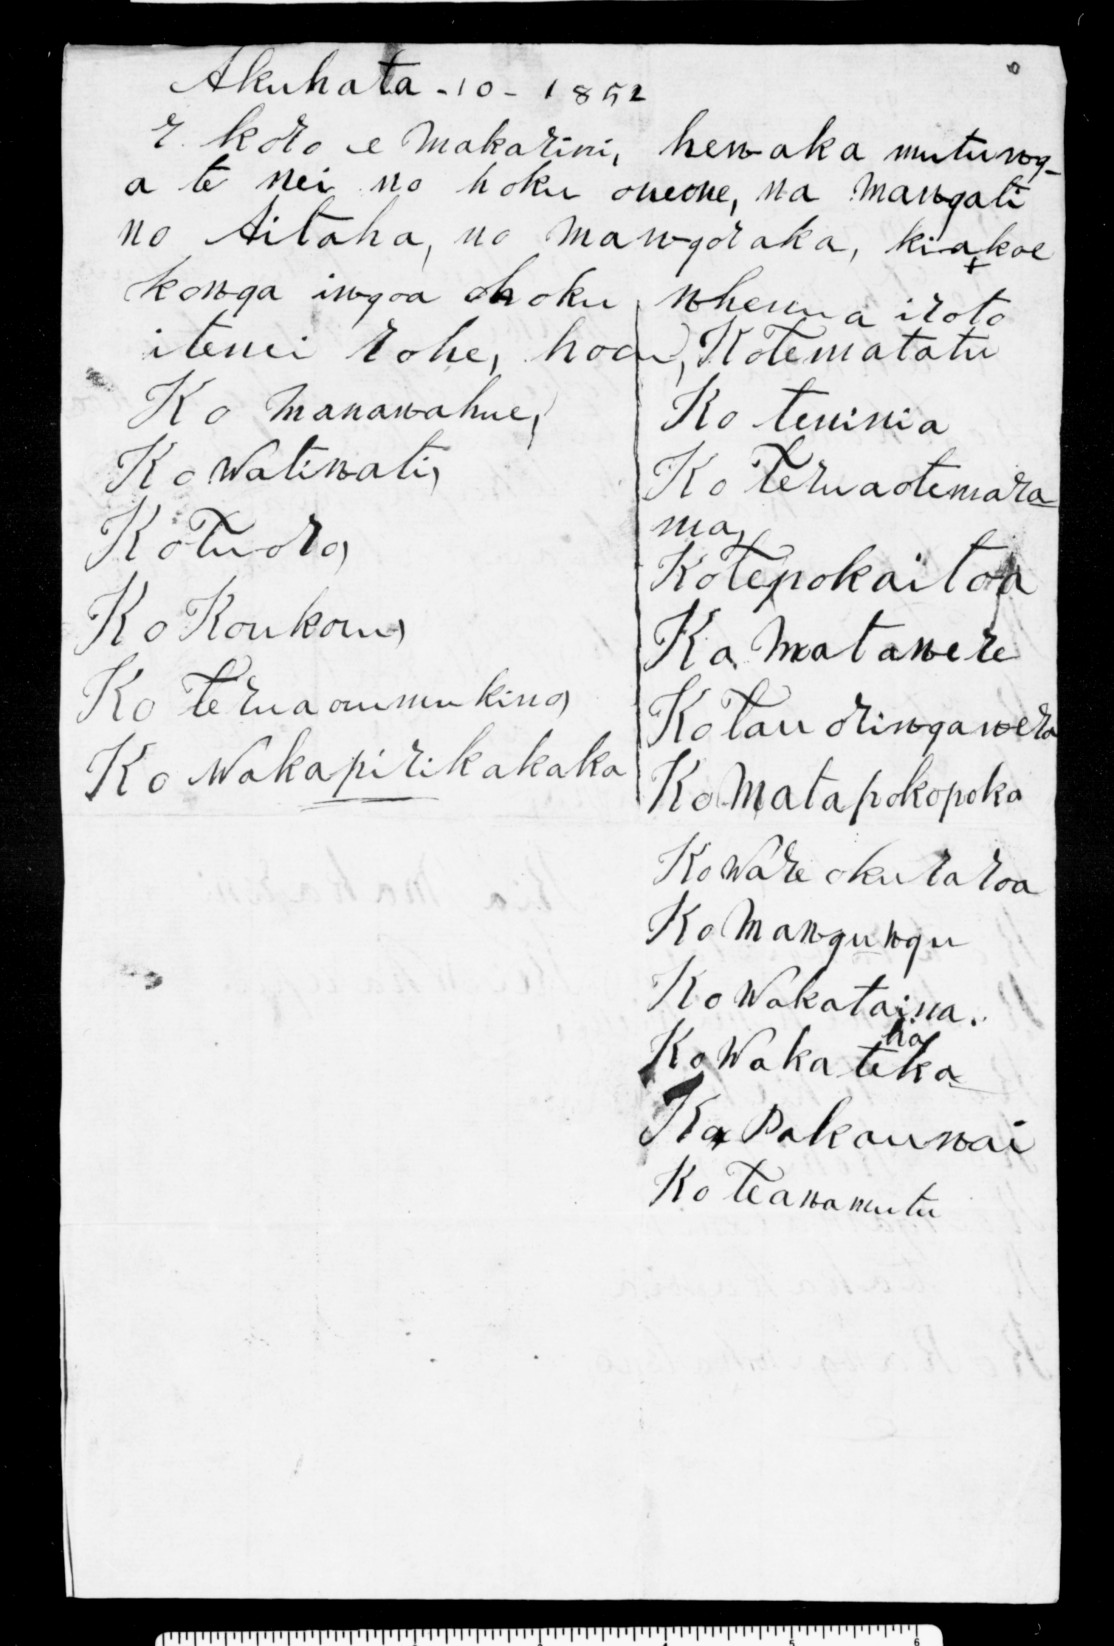 Akuhata - 10 - 1852
E koro e Makarini, hewaka mutung-
a te nei no hoku oneone, na Mangati
no Aitaha, no Mangoraka, kia koe
konga ingoa ohoku whenua iroto
itenei rohe, hoau,
Ko Manawahue,
Ko Watiwati,
Ko Tuoro,
Ko Koukou,
Ko teruaoumukino,
Ko Wakapirikakaka
Kotematatu
Ko teninia
Ko Teruaotemara-
ma,
Ko Tepokaitoa
Ko Matawere
Ko Tau oringawera
Ko Matapokopoko
Ko Ware okuraroa
Ko Mangungu
Ko Wakataina.
ha
Ko Waka teka
Ko Pakauwai
Ko Teawamutu